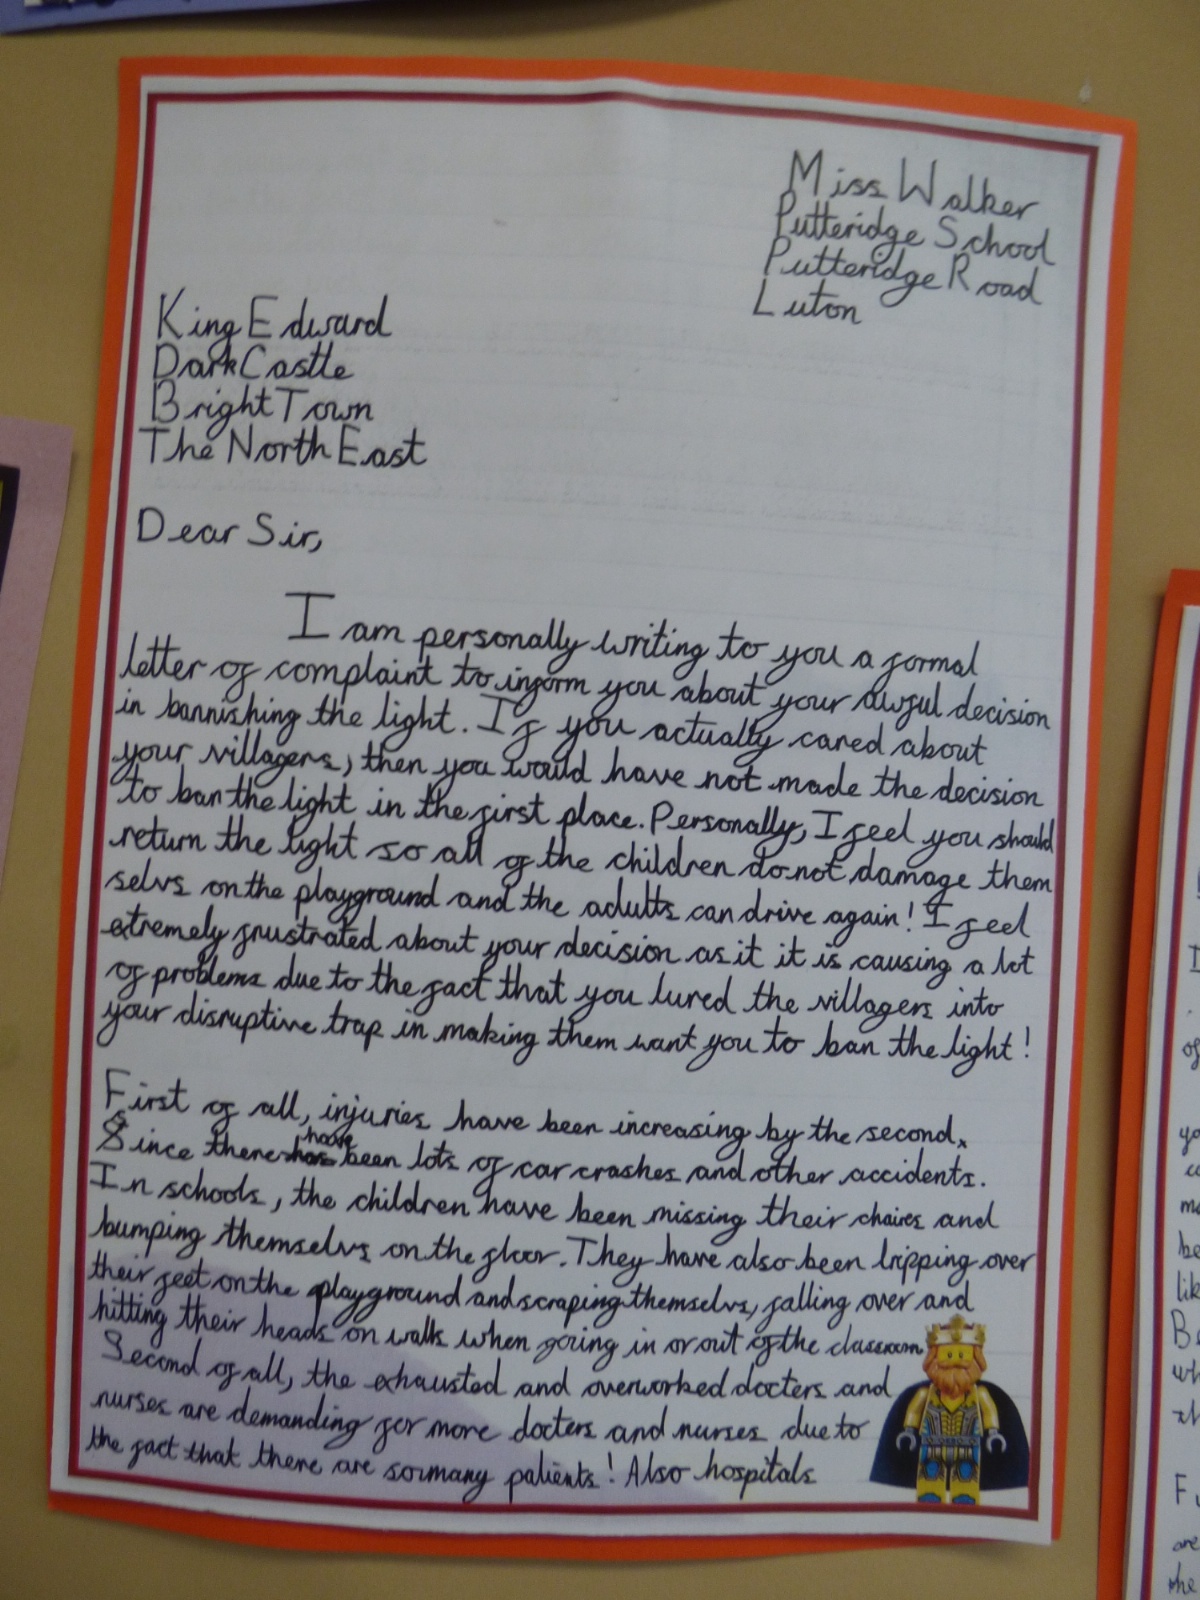 Miss Walker
Putteridge School
Putteridge Road
Luton
King Edward
Dark Castle
Bright Town
The North East
Dear Sir,
I am personally writing to you a formal
letter of complaint to inform you about your awful decision
in bannishing the light. If you actually cared about
your villagers, then you would have not made the decision
to ban the light in the first place. Personally, I feel you should
return the light so all of the children do not damage them
selvs on the playground and the adults can drive again! I feel
extremely frustrated about your decision as it it is causing a lot
of problems due to the fact that you lured the villagers into
your disruptive trap in making them want you to ban the light!
First of all, injuries have been increasing by the second.
Since there have been lots of car crashes and other accidents.
In schools, the children have been missing their chaires and
bumping themselvs on the floor. They have also been tripping over
their feet on the playground and scraping themselvs, falling over and
hitting their heads on walls when going in or out of the classroom
Second of all, the exhausted and overworked docters and
nurses are demanding for more docters and nurses due to
the fact that there are so many patients! Also hospitals